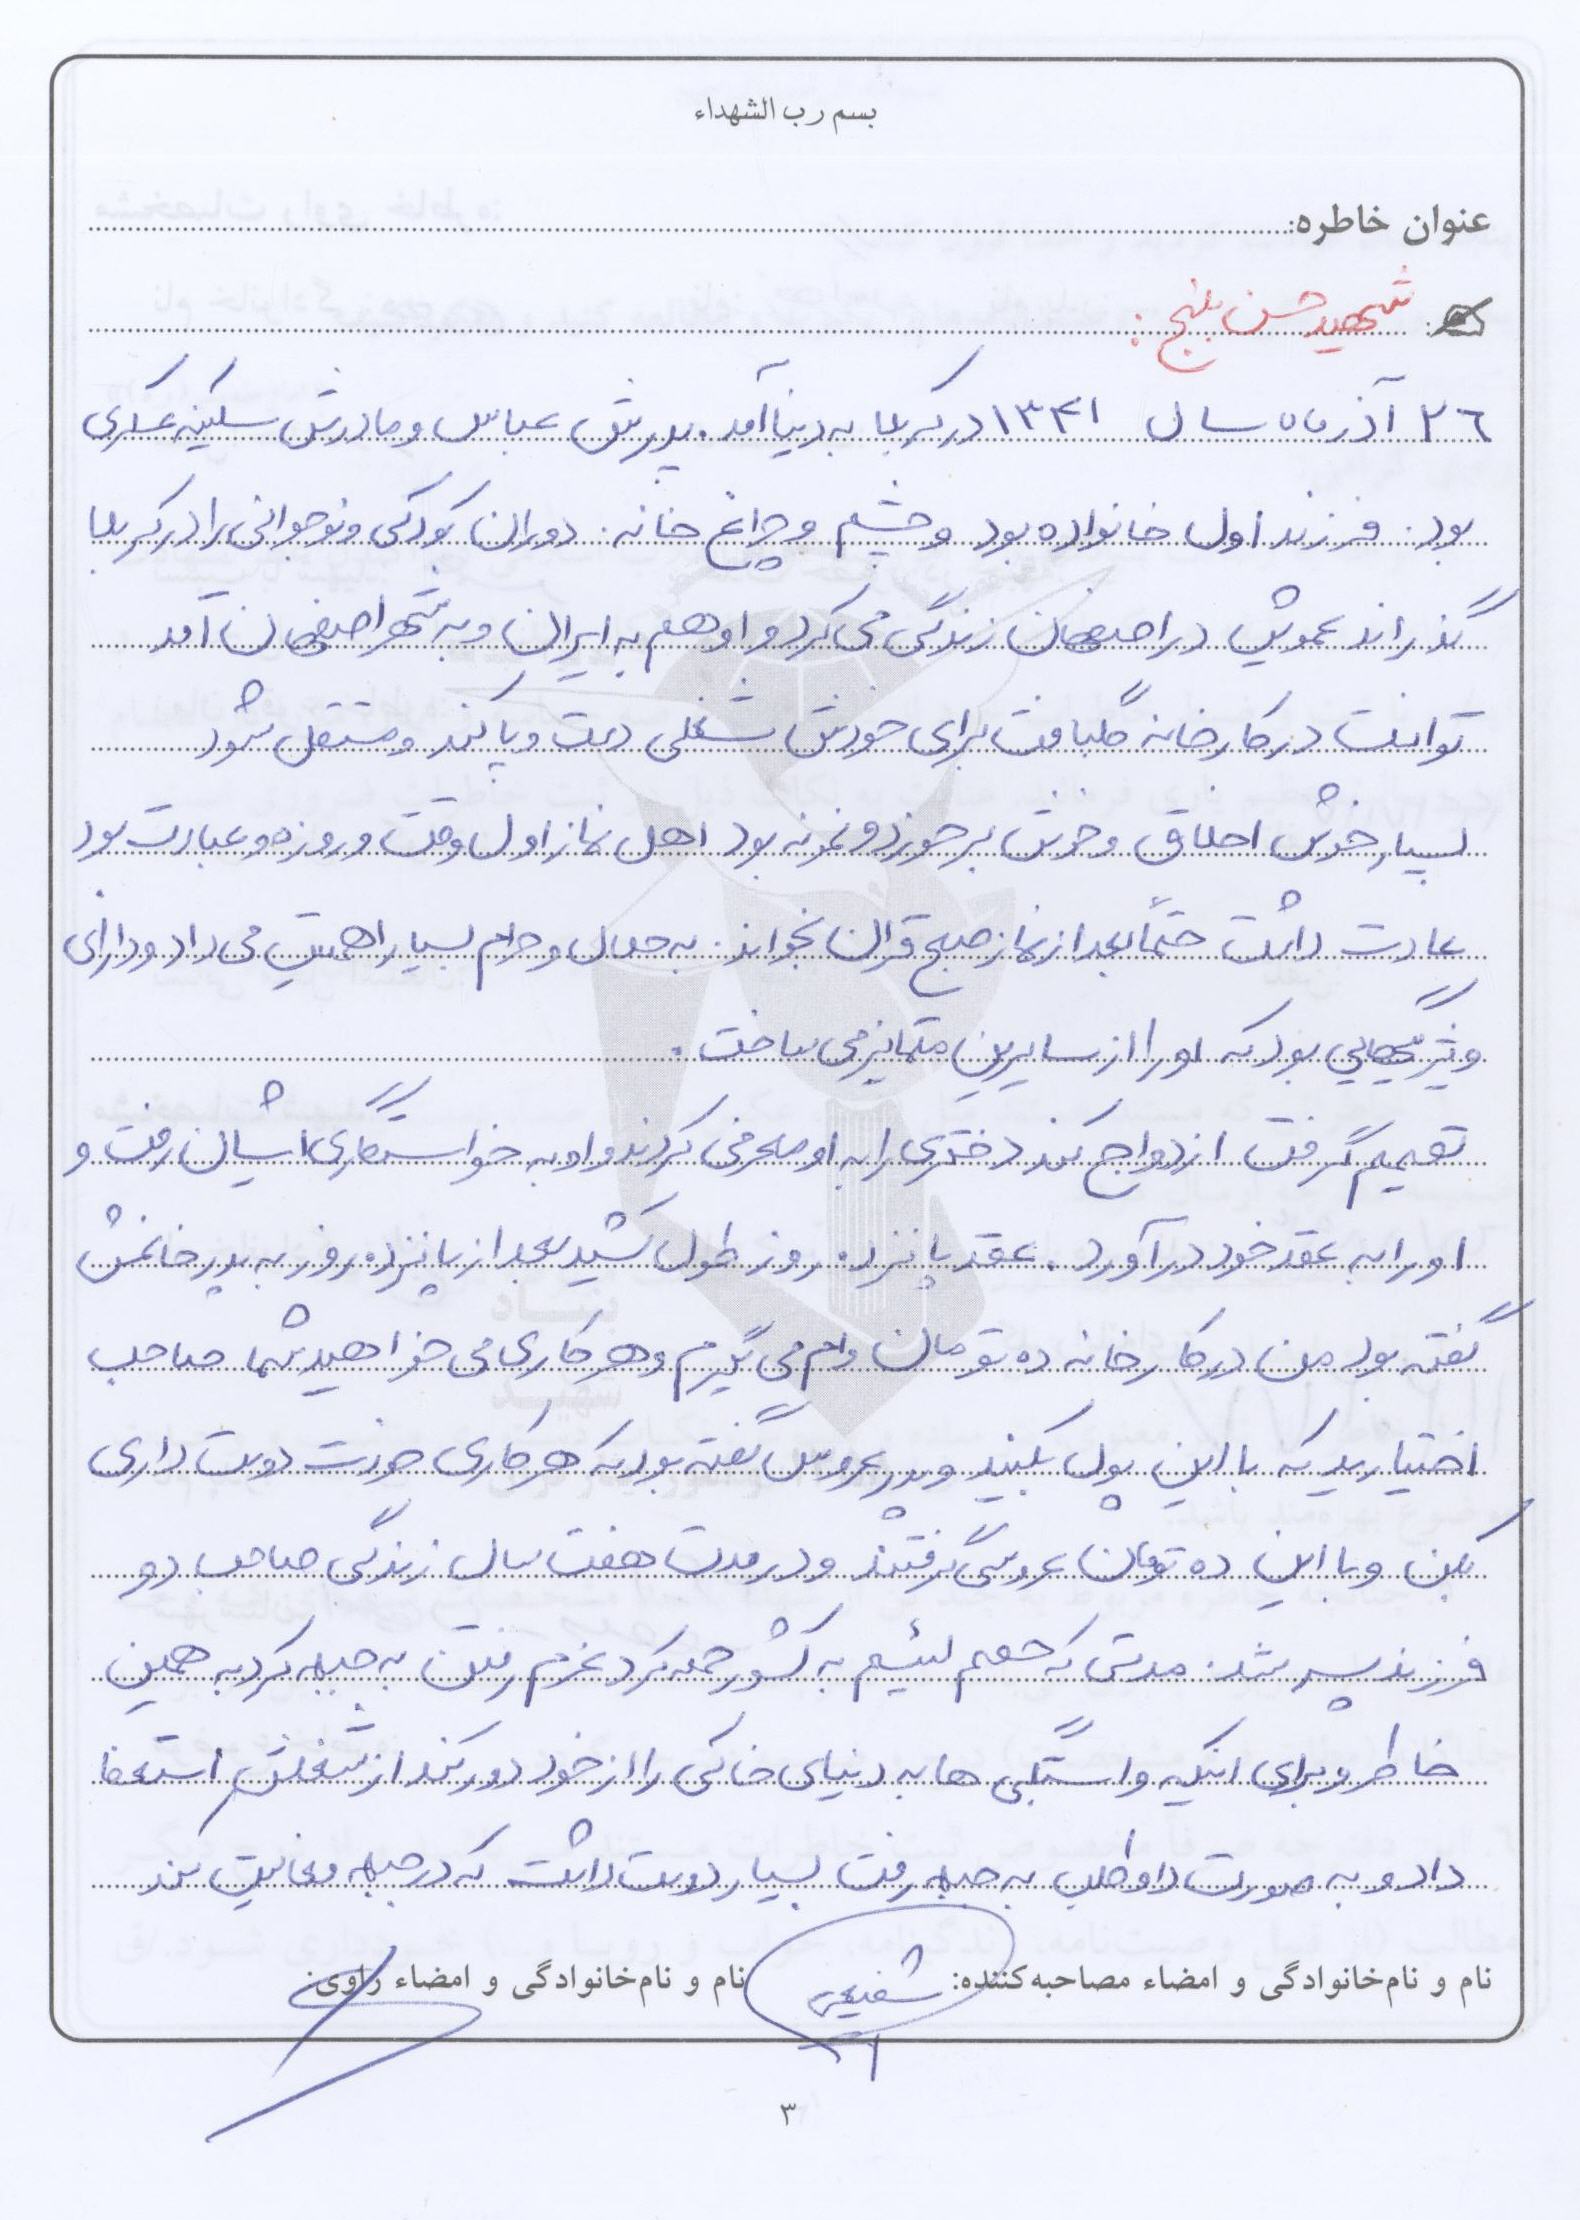 بسم رب الشهداء
عنوان خاطره:
شهید حسن بلنج :
۲۶ آذر ماه سال ۱۳۴۱ در کربلا به دنیا آمد. پدرش عباس و مادرش سکینه عسکری
بود. فرزند اول خانواده بود و چشم و چراغ خانه. دوران کودکی و نوجوانی را در کربلا
گذراند عمویش در اصفهان زندگی می کرد و او هم به ایران و به شهر اصفهان آمد
توانست در کارخانه گلبافت برای خودش شغلی دست و پا کند و مستقل شود
بسیار خوش اخلاق و خوش برخورد و نمونه بود اهل نماز اول وقت و روزه و عبادت بود
عادت داشت حتماً بعد از نماز صبح قرآن بخواند. به حلال و حرام بسیار اهمیت می داد و دارای
ویژگیهایی بود که او را از سایرین متمایز می ساخت.
تصمیم گرفت ازدواج کند دختری را به او معرفی کردند و او به خواستگاری اشیان رفت و
او را به عقد خود درآورد. عقد پانزده روز طول کشید بعد از پانزده روز به پدر خانمش
گفته بود من در کارخانه ده تومان وام می گیرم و هر کاری می خواهید شما صاحب
اختیارید که با این پول بکنید و پدر عروس گفته بود که هر کاری خودت دوست داری
بکن و با این ده تومان عروسی گرفتند و در مدت هفت سال زندگی صاحب دو
فرزند پسر شد. مدتی که صدام لئیم به کشور حمله کرد عزم رفتن به جبهه کرد به همین
خاطر و برای اینکه وابستگی ها به دنیای خاکی را از خود دور کند از شغلش استعفا
داد و به صورت داوطلب به جبهه رفت بسیار دوست داشت که در جبهه فعالیت کند
نام و نام‌خانوادگی و امضاء مصاحبه‌کننده: شفیعی نام و نام‌خانوادگی و امضاء راوی:
۳